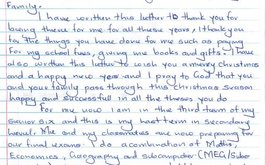 Family.
I have written this letter to thank you for
loving theses for me for all theses years, I thank you
for the things you have done for me such as paying
for my school fees, giving me books and gifts. I have
also written this letter to wish you a merry christmas
and a happy new year and I pray to God that you
and your family pass through this christmas season
happy and successful in all the theses you do
For my now I am in the third term of my
senior six and this is my last term in secondary
level. Me and my classmates are now preparing for
our final exams. I do a combination of Maths,
Economics, Geography and subcomputer (MEG/Subcom